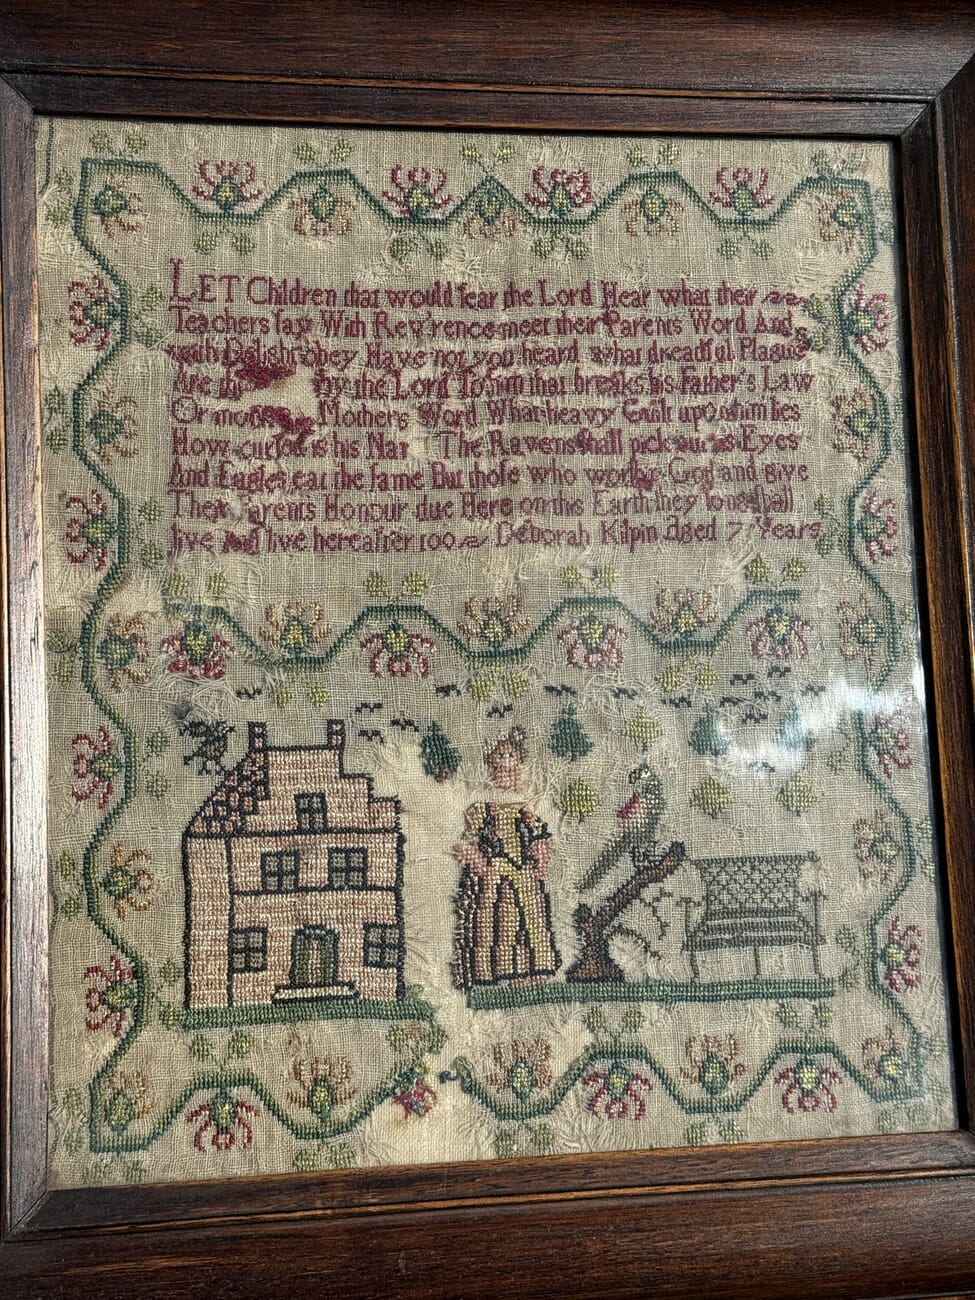 LET Children that would fear the Lord Hear what their
Teachers ſay With Rev'rence meet their Parents Word And
with Delight Obey Have not you heard what dreadful Plagues
Are by the Lord To him that breaks his Father's Law
Or Mothers Word What heavy Guilt upon him lies
How curſed is his Nam The Ravens ſhall pick out his Eyes
And Eagles eat the ſame But thoſe who worſhip God and give
Their Parents Honour due Here on this Earth they long ſhall
live And live hereafter too Deborah Kilpin Aged 7 Years